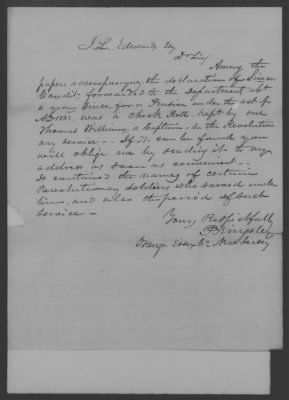 J L Edwards Esq
Dr Sir,
Among the
papers accompanying the declaration of Simon
Condit, forwarded to the Department abt
a year since for a Pension under the act of
was a Check Roll kept by one
Thomas Williams, a Captain in the Revolution
ary service - If it can be found you
will oblige me by sending it to my
address as soon as convenient -
It contained the names of certain
Revolutionary soldiers who served under
him, and also the period of such
service -
Yours Respectfully
Kingsley
Orange Essex Co New Jersey